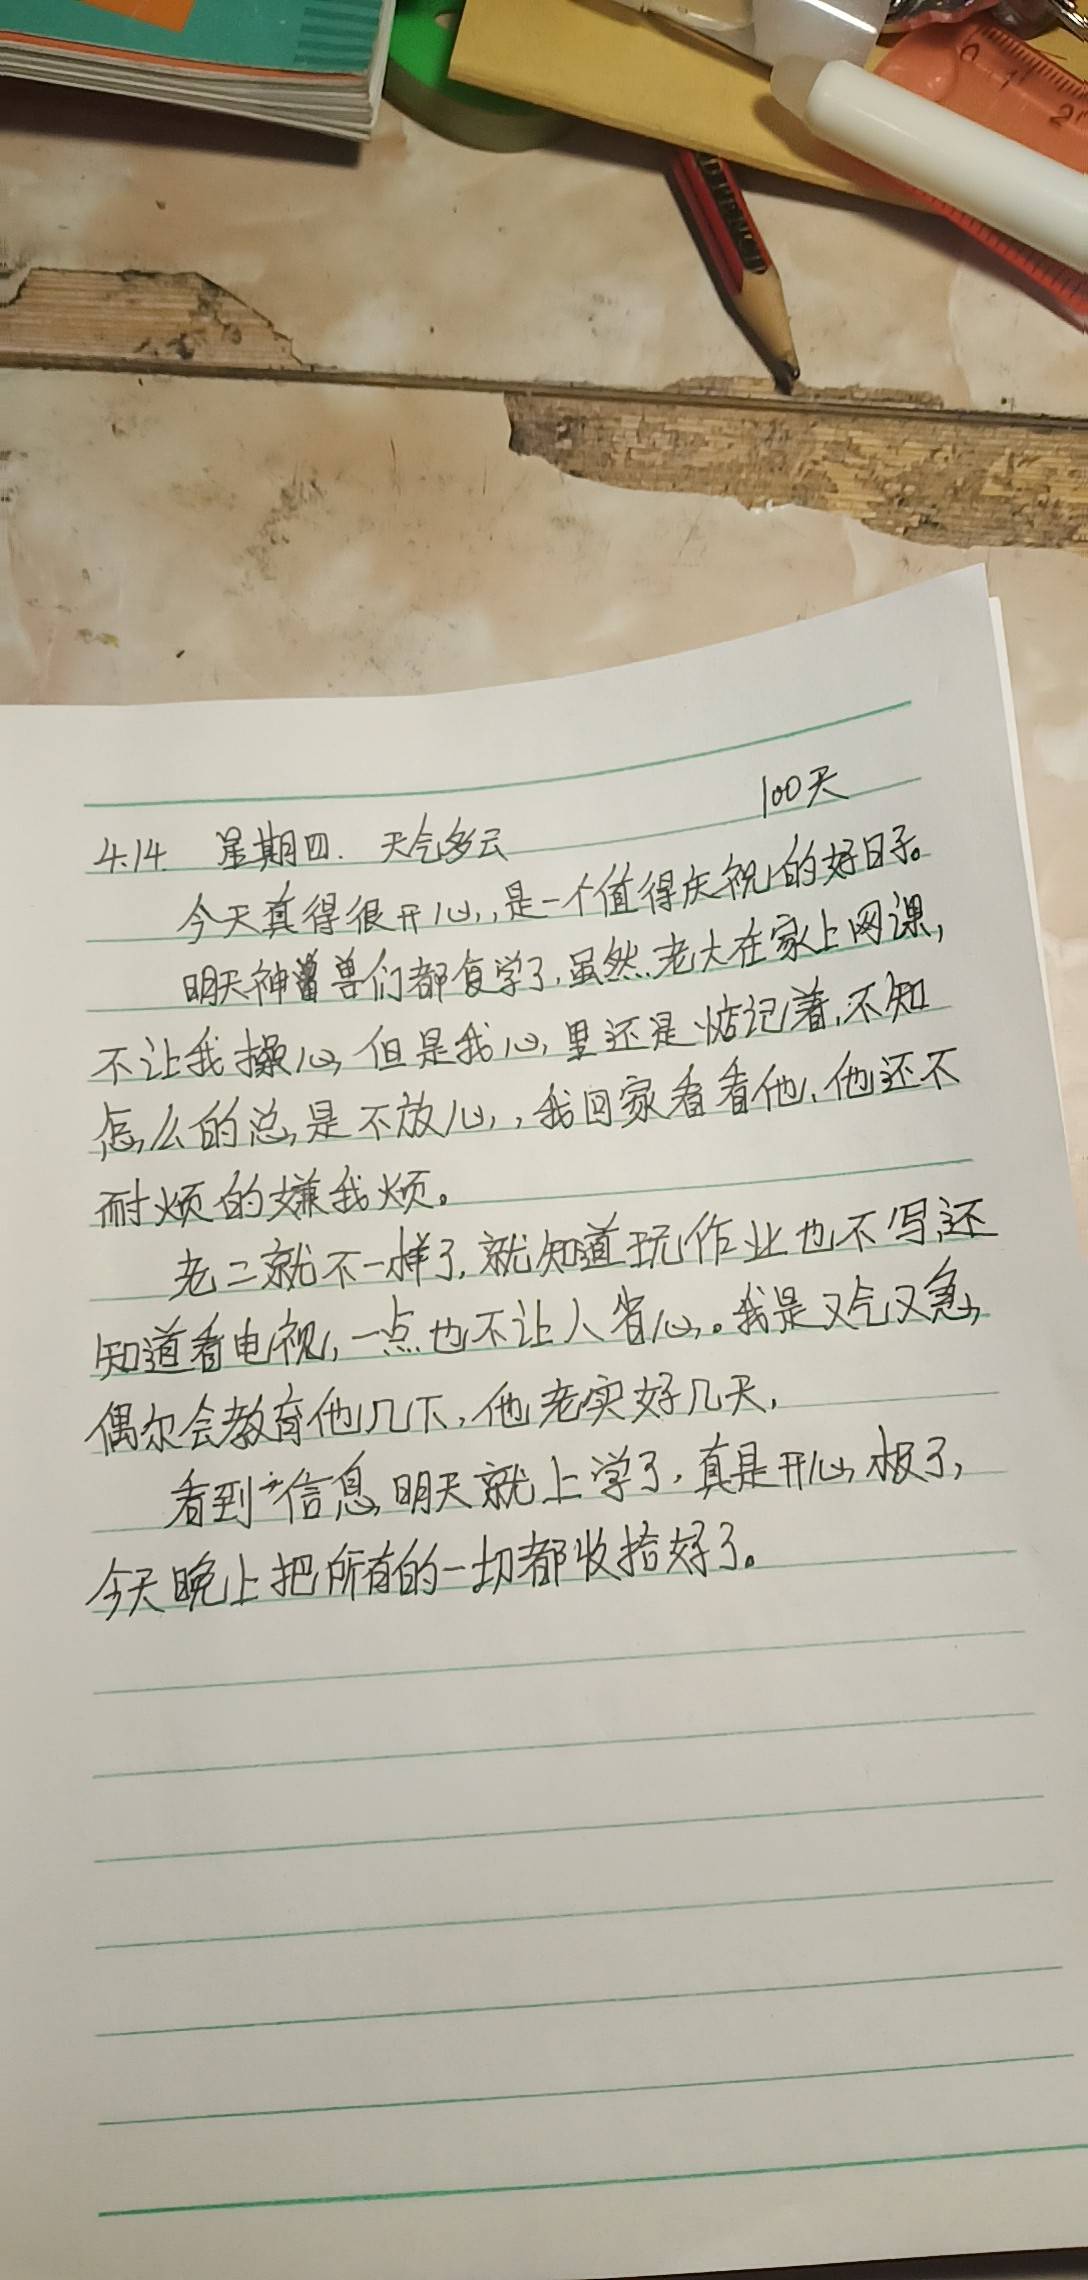 0 1 2
PENCIL
100天
4.14. 星期四. 天气多云
今天真得很开心,是一个值得庆祝的好日子。
明天神兽们都复学了,虽然老大在家上网课,
不让我操心,但是我心里还是惦记着,不知
怎么的总是不放心,我回家看看他,他还不
耐烦的嫌我烦。
老二就不一样了,就知道玩作业也不写,还
知道看电视,一点也不让人省心。我是又气又急,
偶尔会教育他几下,他老实好几天,
看到信息,明天就上学了,真是开心极了,
今天晚上把所有的一切都收拾好了。